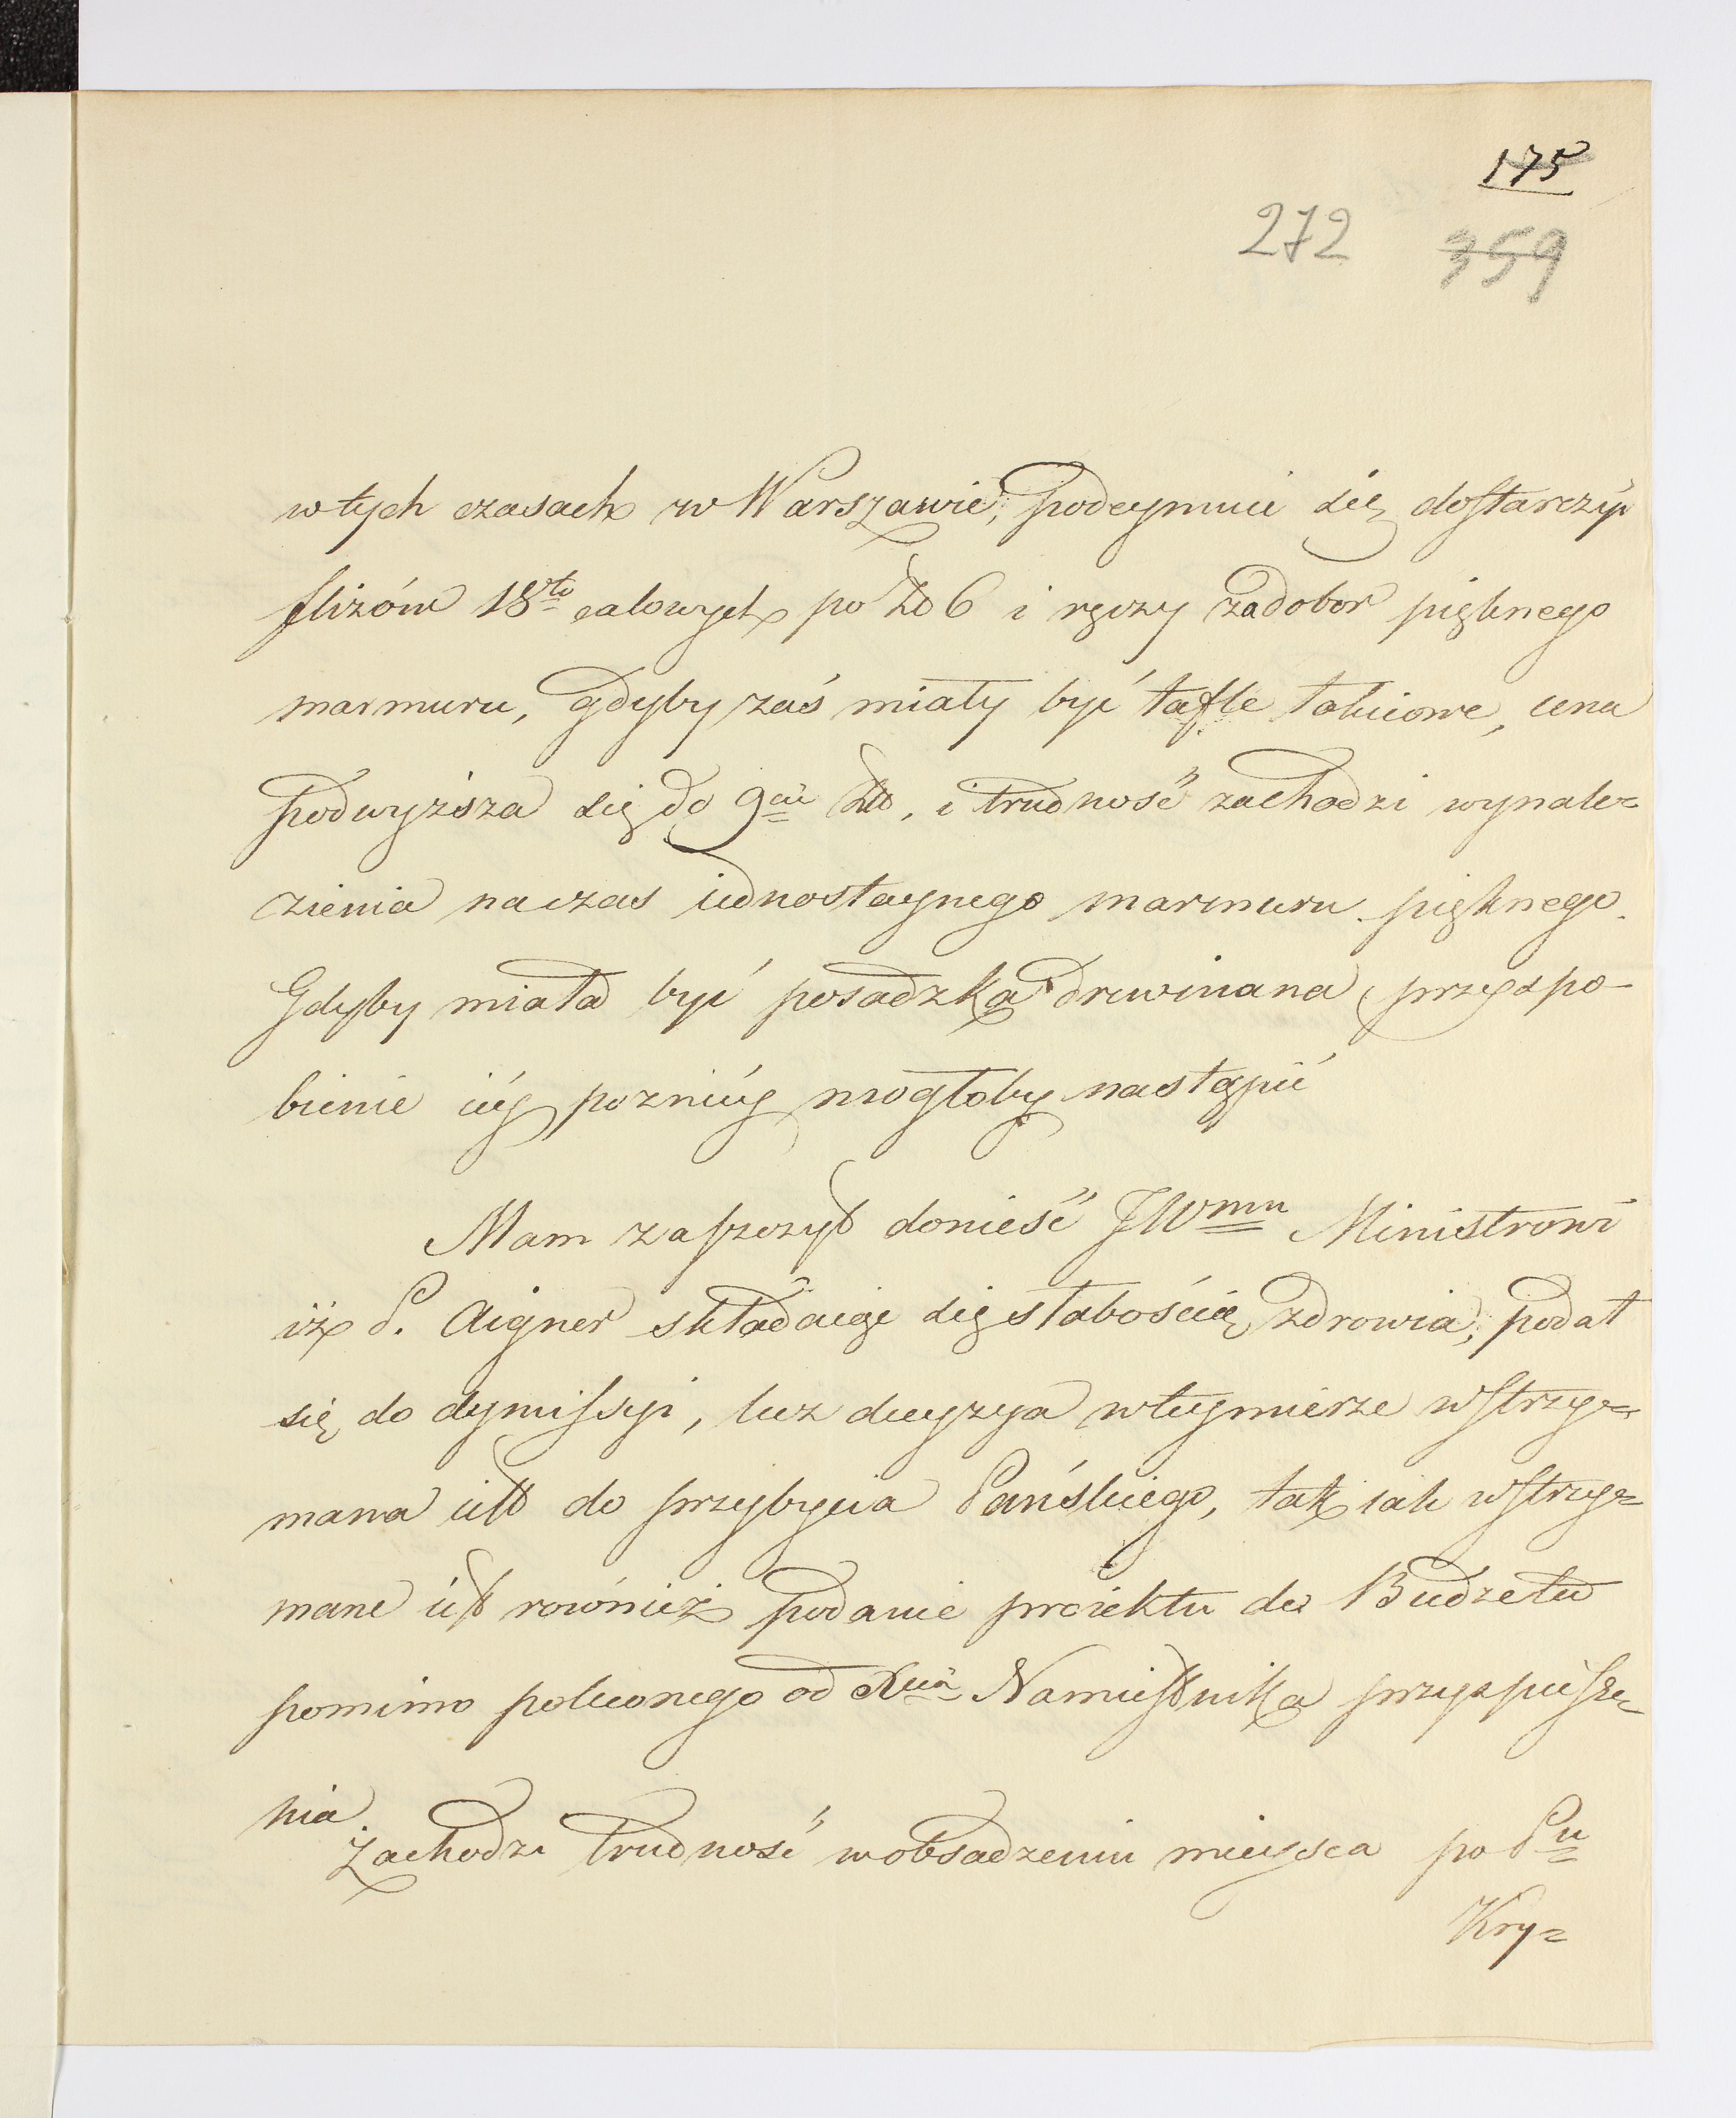 175
272 359
w tych czasach w Warszawie, podeymuie się dostarczyć
flizów 18to calowych po Zł 6 i ręczy za dobor pięknego
marmuru, gdyby zaś miały być tafle łokciowe, cena
podwyższa się do 9ciu Zł, i trudność zachodzi wynale=
zienia na czas iednostaynego marmuru pięknego.
Gdyby miała być posadzka drewniana, przyspo-
bienie iéy pozniéy mogłoby nastąpić
Mam zaszczyt donieść JWmu Ministrowi
iż P. Aigner składaiąc się słabością zdrowia, podał
się do dymissyi, lecz decyzya w tey mierze wstrzy=
mana iest do przybycia Pańskiego, tak iak wstrzy=
mane iest rownież podanie proiektu do Budżetu
pomimo poleconego od Xcia Namiestnika przyspiesze=
nia.
Zachodzi trudność w obsadzeniu mieysca po Pu
Kry=